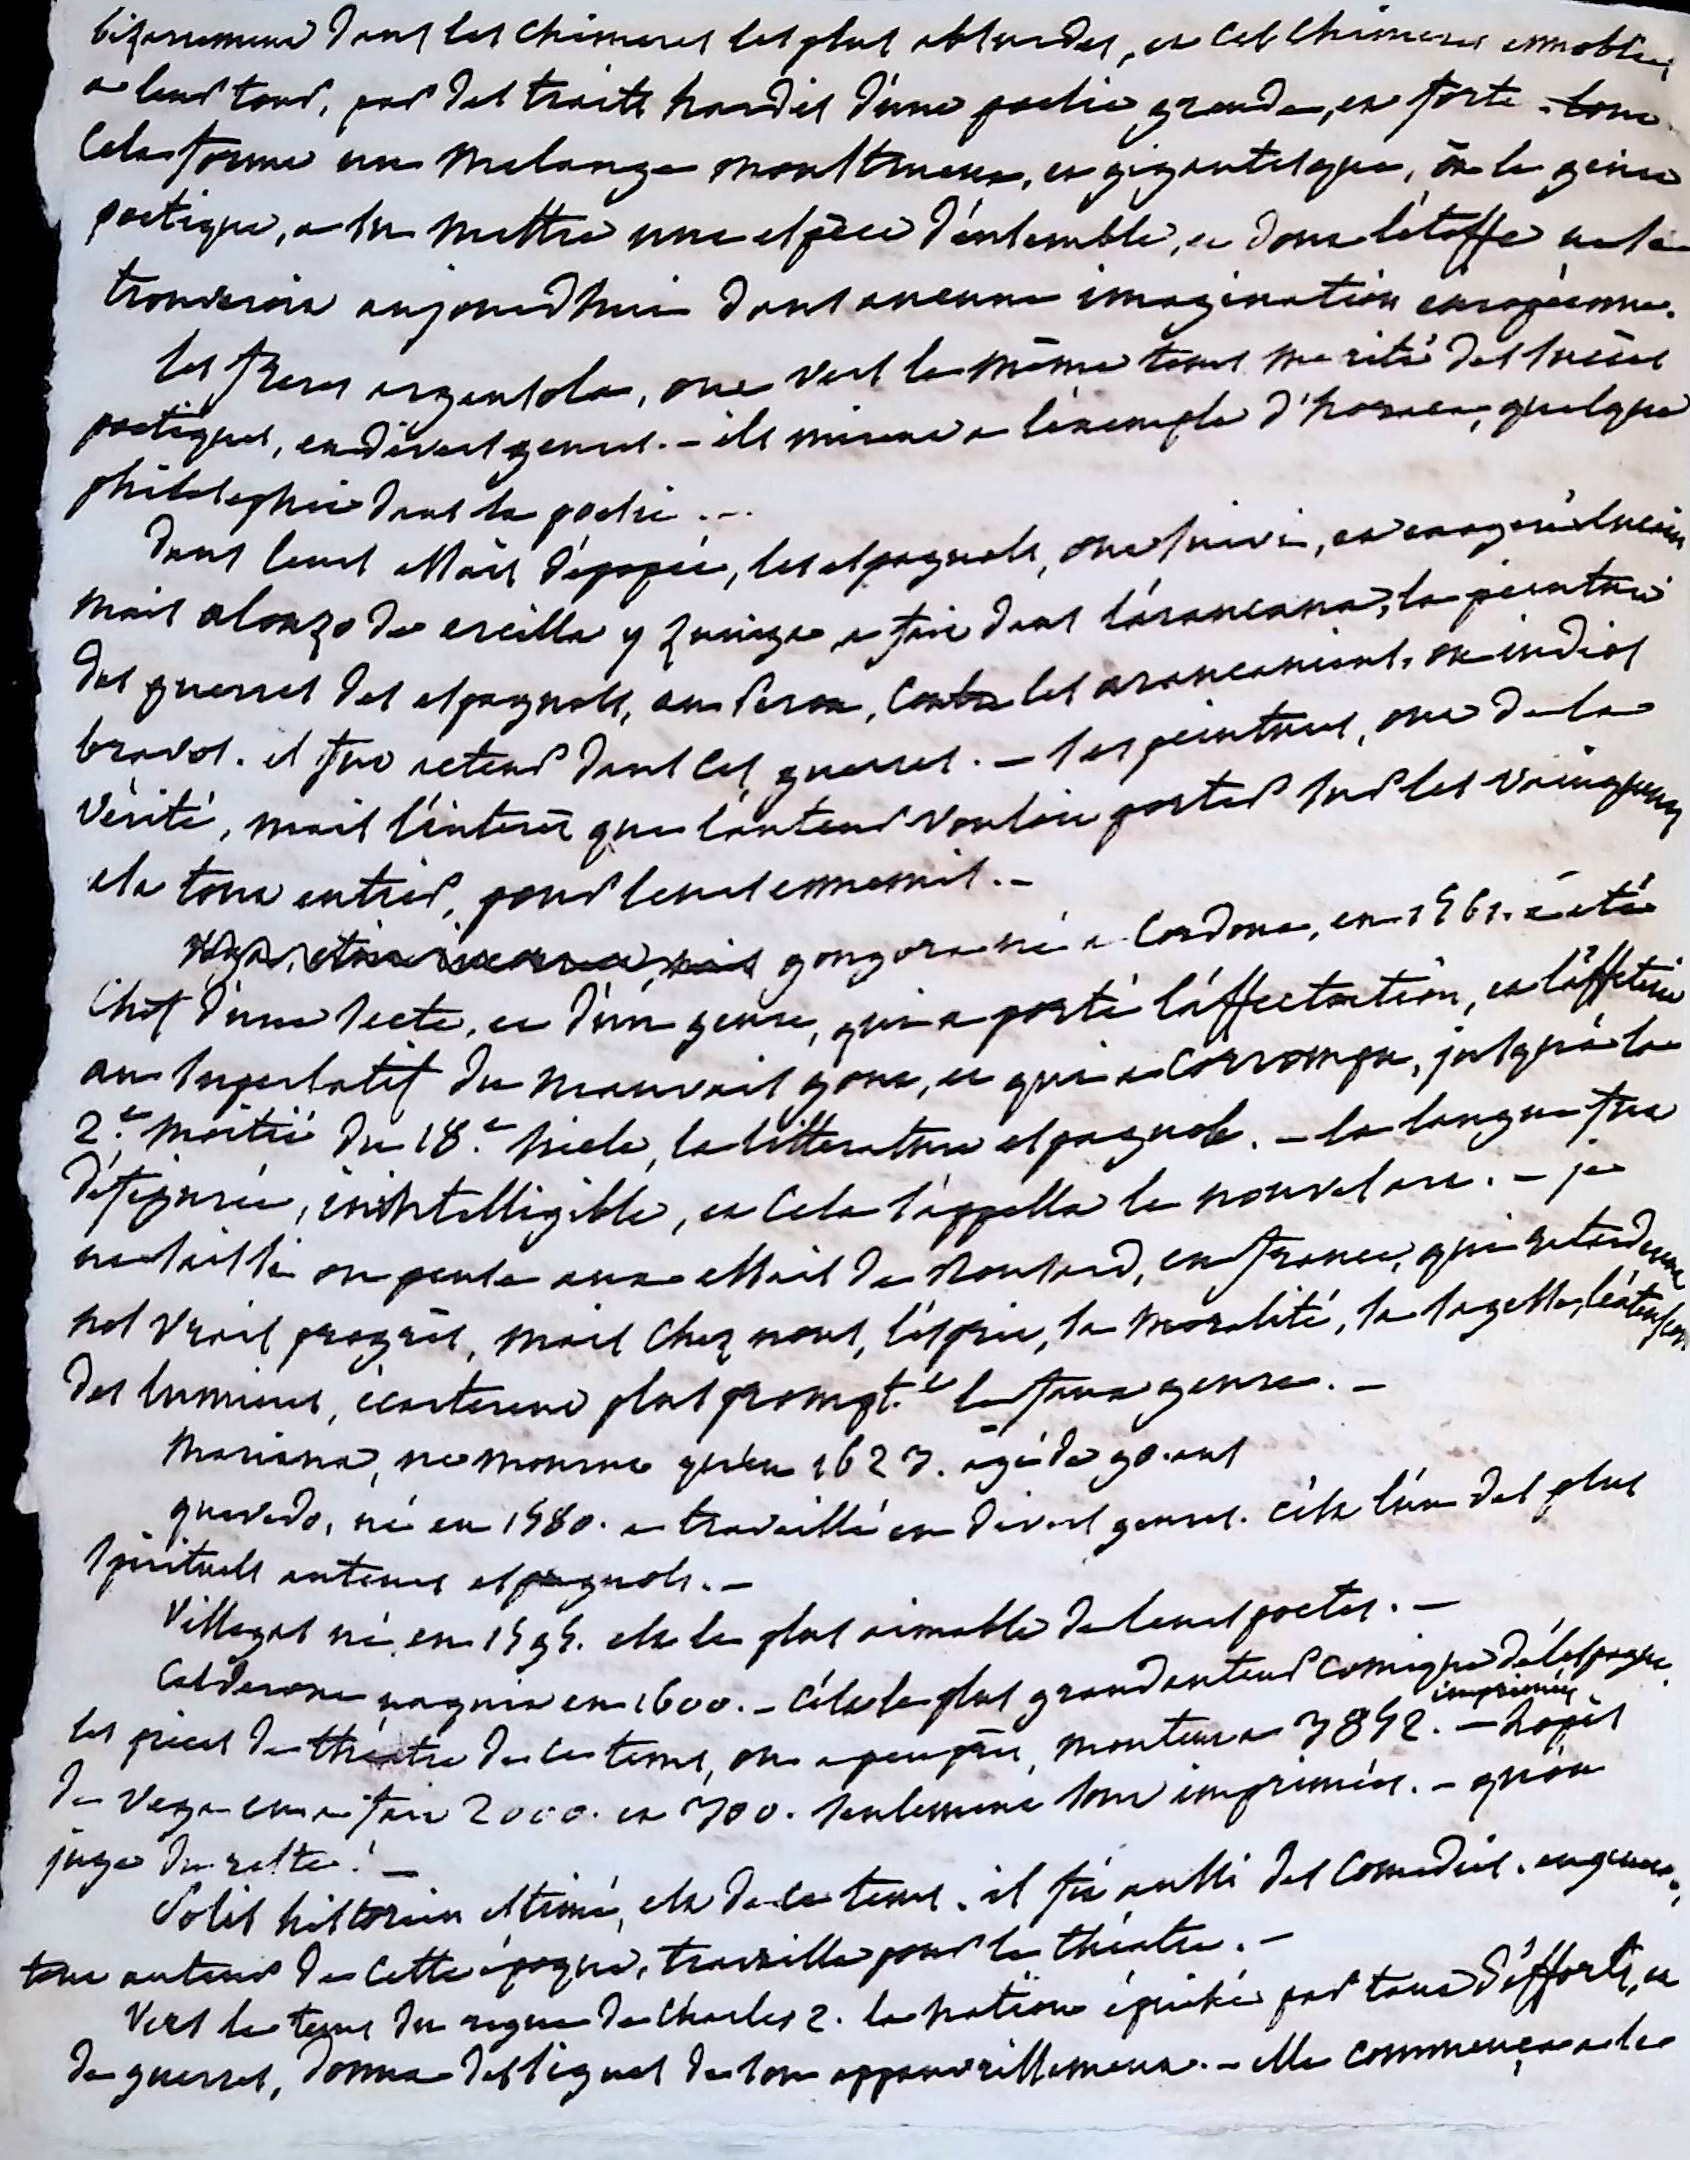 bizarrement dans les chimeres les plus absurdes, et ces chimeres ennoblies
a leur tour, par des traits hardis d'une poesie grande, et forte. tout
cela forme un melange monstrueux, et gigantesque, où le genie
poetique, a su mettre une espece d'ensemble, et dont l'étoffe ne se
trouveroit aujourdhui dans aucune imagination européenne.
les freres argensola, ont vers le même tems merité des succès
poetiques, en divers genres. - ils mirent a l'exemple d'horace, quelque
philosophie dans la poesie ...
dans leurs essais d'épopée, les espagnols, ont suivi, et exageré lucain
mais alonzo de ercilla y zuniga, a fait dans l'araucana, la peinture
des guerres des espagnols, au perou, contre les araucaniens, ou indios
bravos. il fut acteur dans ces guerres. - ses peintures, ont de la
vérité, mais l'interêt que l'auteur vouloit porter sur les vainqueurs
est tout entier, pour leurs ennemis. -
gongora né a Cordoue, en 1561. a été
chef d'une secte, et d'un genre, qui a porté l'affectation, et l'affeterie
au superlatif du mauvais gout, et qui a corrompu, jusqu'à la
2.e moitié du 18.e siecle, la litterature espagnole. - la langue fut
défigurée, inintelligible, et cela s'appella le nouvel art. - je
ne sais si on pense aux essais de Ronsard, en france, qui retarderent
nos vrais progrès, mais chez nous, l'esprit, la moralité, la sagesse, l'extension
des lumieres, écarterent plus prompt.t le faux genre. -
Mariana, ne mourut qu'en 1623. agé de 90. ans
quevedo, né en 1580. a travaillé en divers genres. c'est l'un des plus
spirituels auteurs espagnols. -
Villegas né en 1595. est le plus aimable de leurs poetes. -
Calderone naquit en 1600. - c'est le plus grand auteur comique de l'espagne.
imprimées
les pieces de théatre de ce tems, ou a peu près, montent a 3852. - Lopès
de Vega en a fait 2000. et 300. seulement sont imprimées. - qu'on
juge du reste! -
Solis historien estimé, est de ce tems. il fit aussi des comedies. en general,
tout auteur de cette époque, travailla pour le théatre. -
Vers le tems du regne de Charles 2. la nation épuisée par tant d'efforts, et
de guerres, donna des signes de son appauvrissement. - elle commença a se